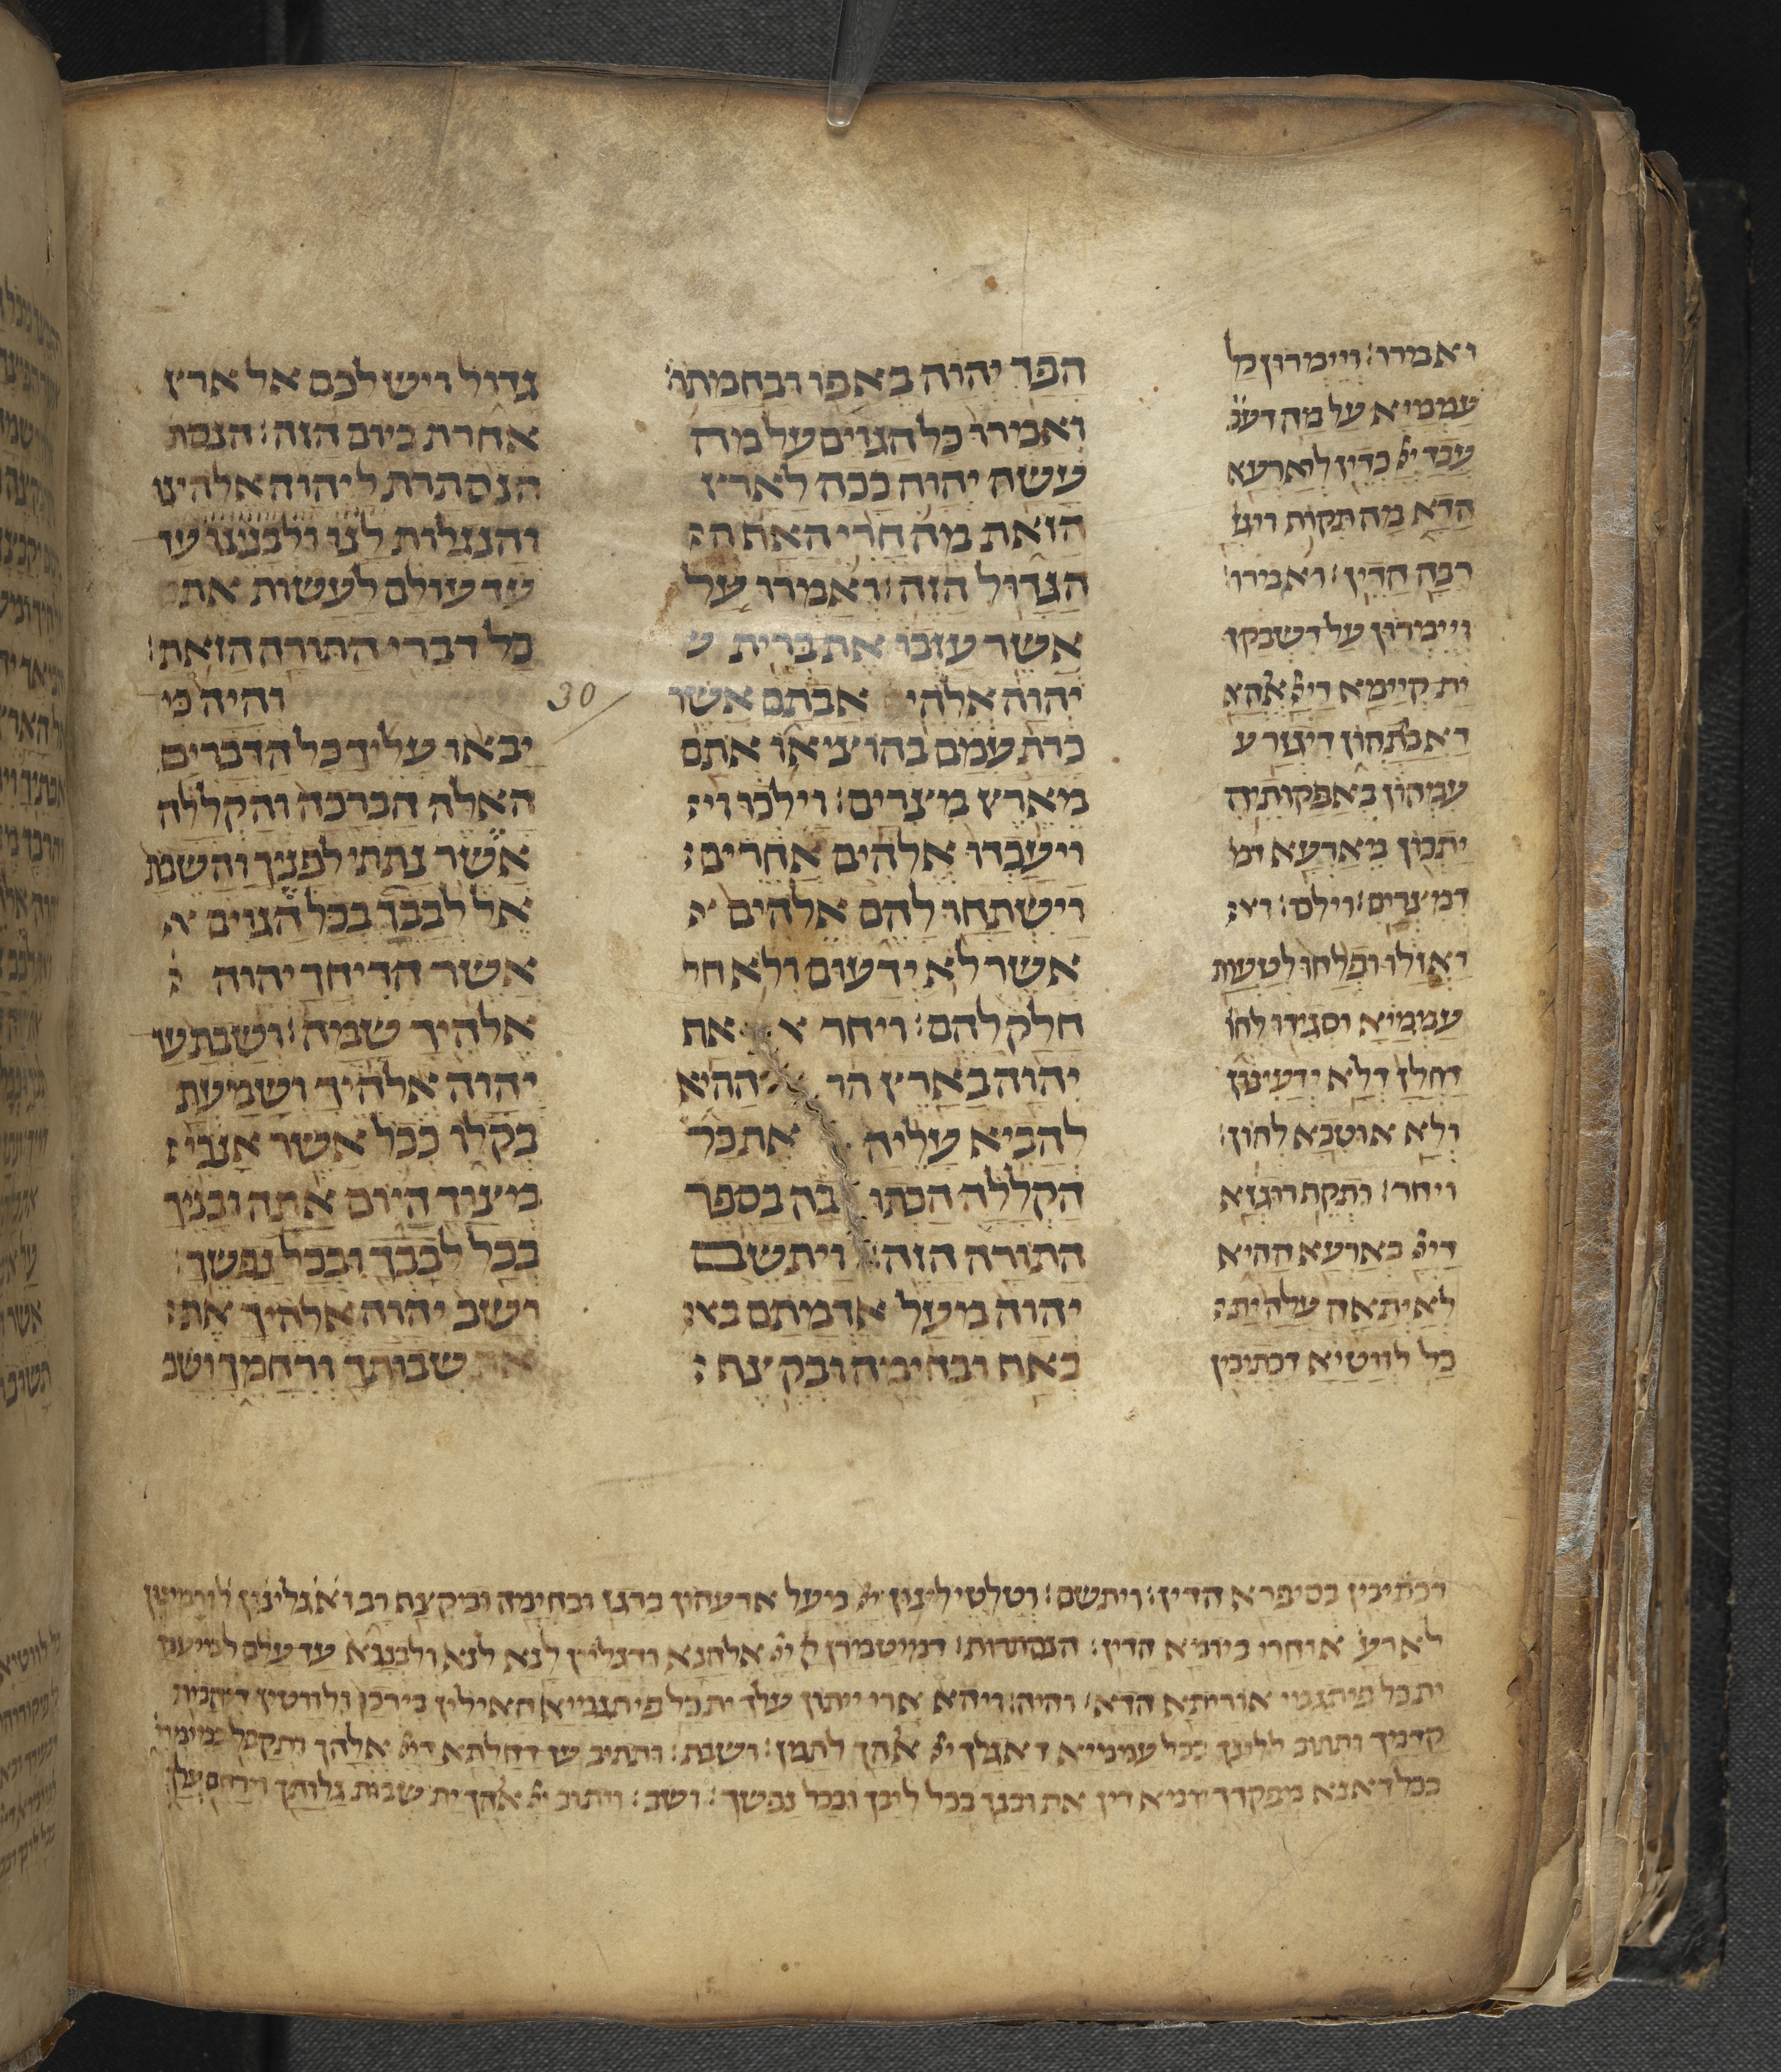 ואמרו: ויימרון כל
עממיא על מה דעב
עבד יי כדין לארעא
הדא מה תקות רוגז
רבה הדין: ואמרו:
ויימרון על דשבקו
ית קיימא דיי אלהא
דאבתהון דיגזר ע
עמהון באפקותיה
יתהון מארעא דמ
דמצרים: וילכו:
ואזלו ופלחו לטעות
עממיא וסגידו להו
דחלן דלא ידעינון
ולא אוטבא להון:
ויחר: ותקף רוגזא
דיי בארעא ההיא
לאיתאה עלה ית
כל לווטיא דכתיבין
הפך יהוה באפו ובחמתו:
ואמרו כל הגוים על מה
עשה יהוה ככה לארץ
הזאת מה חרי האף ה
הגדול הזה: ואמרו על
אשר עזבו את ברית
יהוה אלהי אבתם אשר
כרת עמם בהוציאו אתם
מארץ מצרים: וילכו וי
ויעבדו אלהים אחרים
וישתחו להם אלהים א
אשר לא ידעום ולא חל
חלק להם: ויחר א אף
יהוה בארץ הה ההיא
להביא עליה את כל
הקללה הכתו בה בספר
התורה הזה: ויתשם
יהוה מעל אדמתם בא
באף ובחימה ובקצף
גדול וישלכם אל ארץ
אחרת כיום הזה: הנסת
הנסתרת ליהוה אלהינו
והנגלות לנו ולבנינו עד
עד עולם לעשות את
כל דברי התורה הזאת:
30 והיה כי
יבאו עליך כל הדברים
האלה הברכה והקללה
אשר נתתי לפניך והשבת
אל לבבך בכל הגוים א
אשר הדיחך יהוה
אלהיך שמה: ושבת עד
יהוה אלהיך ושמעת
בקלו ככל אשר אנכי
מצוך היום אתה ובניך
בכל לבבך ובכל נפשך:
ושב יהוה אלהיך את
את שבותך ורחמך ושב
דכתיבין בסיפרא הדין: ויתשם: וטלטילינון יי מעל ארעהון ברגז ובחימה ובקצף רב ואגלינון
לארע אוחרי כיומא הדין: הנסתרות: דמיטמרן ק יי אלהנא ודגליין לנא לנא ולבננא עד עלם למיעבד
ית כל פיתגמי אוריתא הדא: והיה: ויהא ארי ייתון עלך ית כל פיתגמיא האילין בירכן ולווטין דיהבית
קדמך ותתוב ללבך בכל עממיא דאגלך יי אלהך לתמן: ושבת: ותתיב עד דחלתא דיי אלהך ותקבל במימריה
ככל דאנא מפקדך יומא דין את ובנך בכל ליבך ובכל נפשך: ושב: ויתוב יי אלהך ית שבות גלותך וירחם עלך